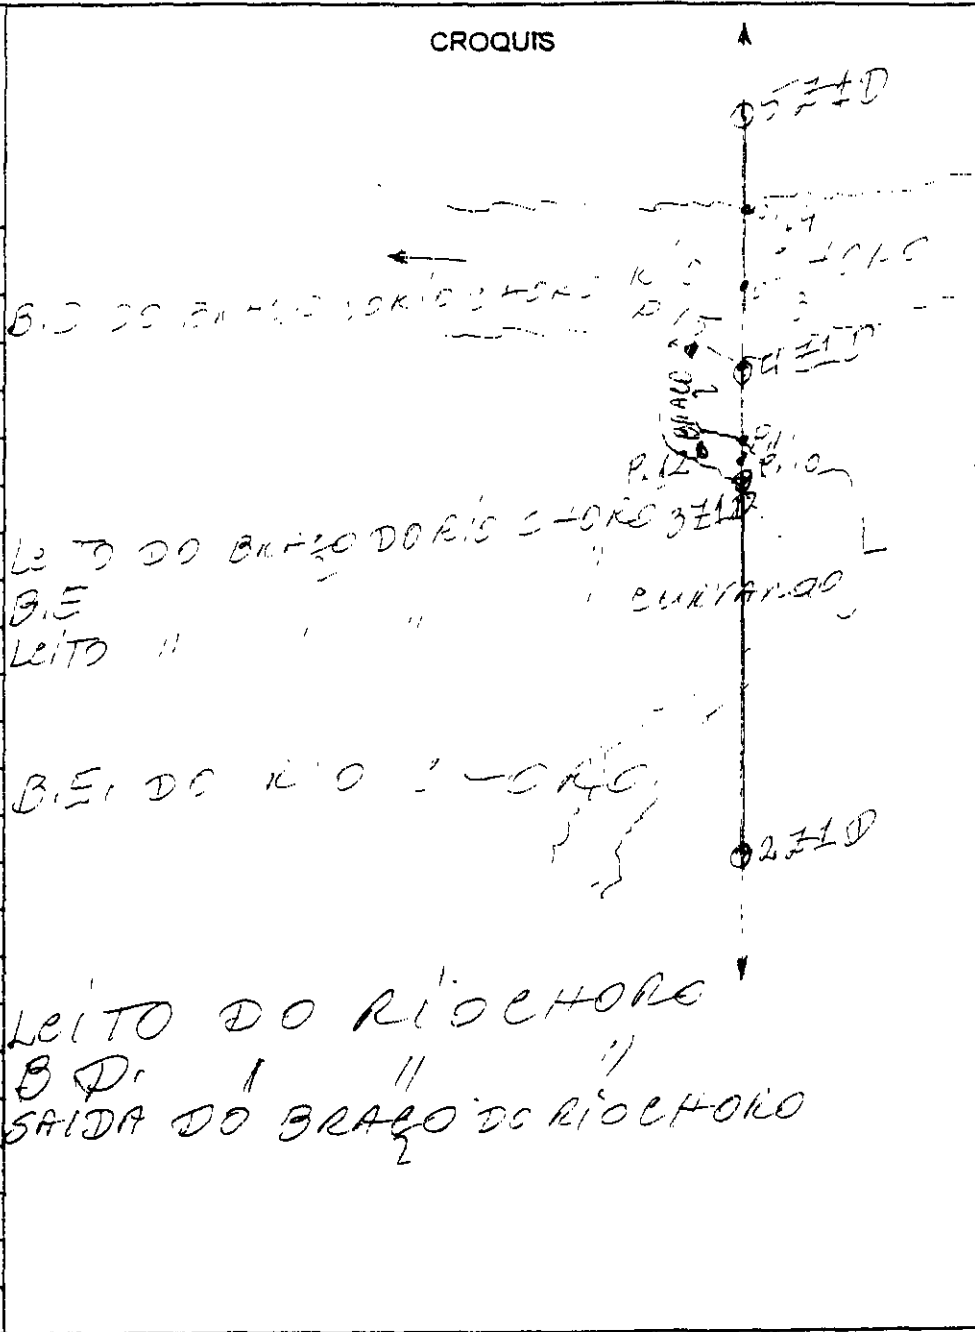 CROQUIS
571D
RIO CHORO
B.D DO BRAÇO DO RIO CHORO
471D
BRAÇO
P.12
P.10
LEITO DO BRAÇO DO RIO CHORO 371D
B.E " "
CURVANDO
LEITO " " "
B.E. DO RIO CHORO
271D
LEITO DO RIO CHORO
B D. " " "
SAIDA DO BRAÇO DO RIO CHORO